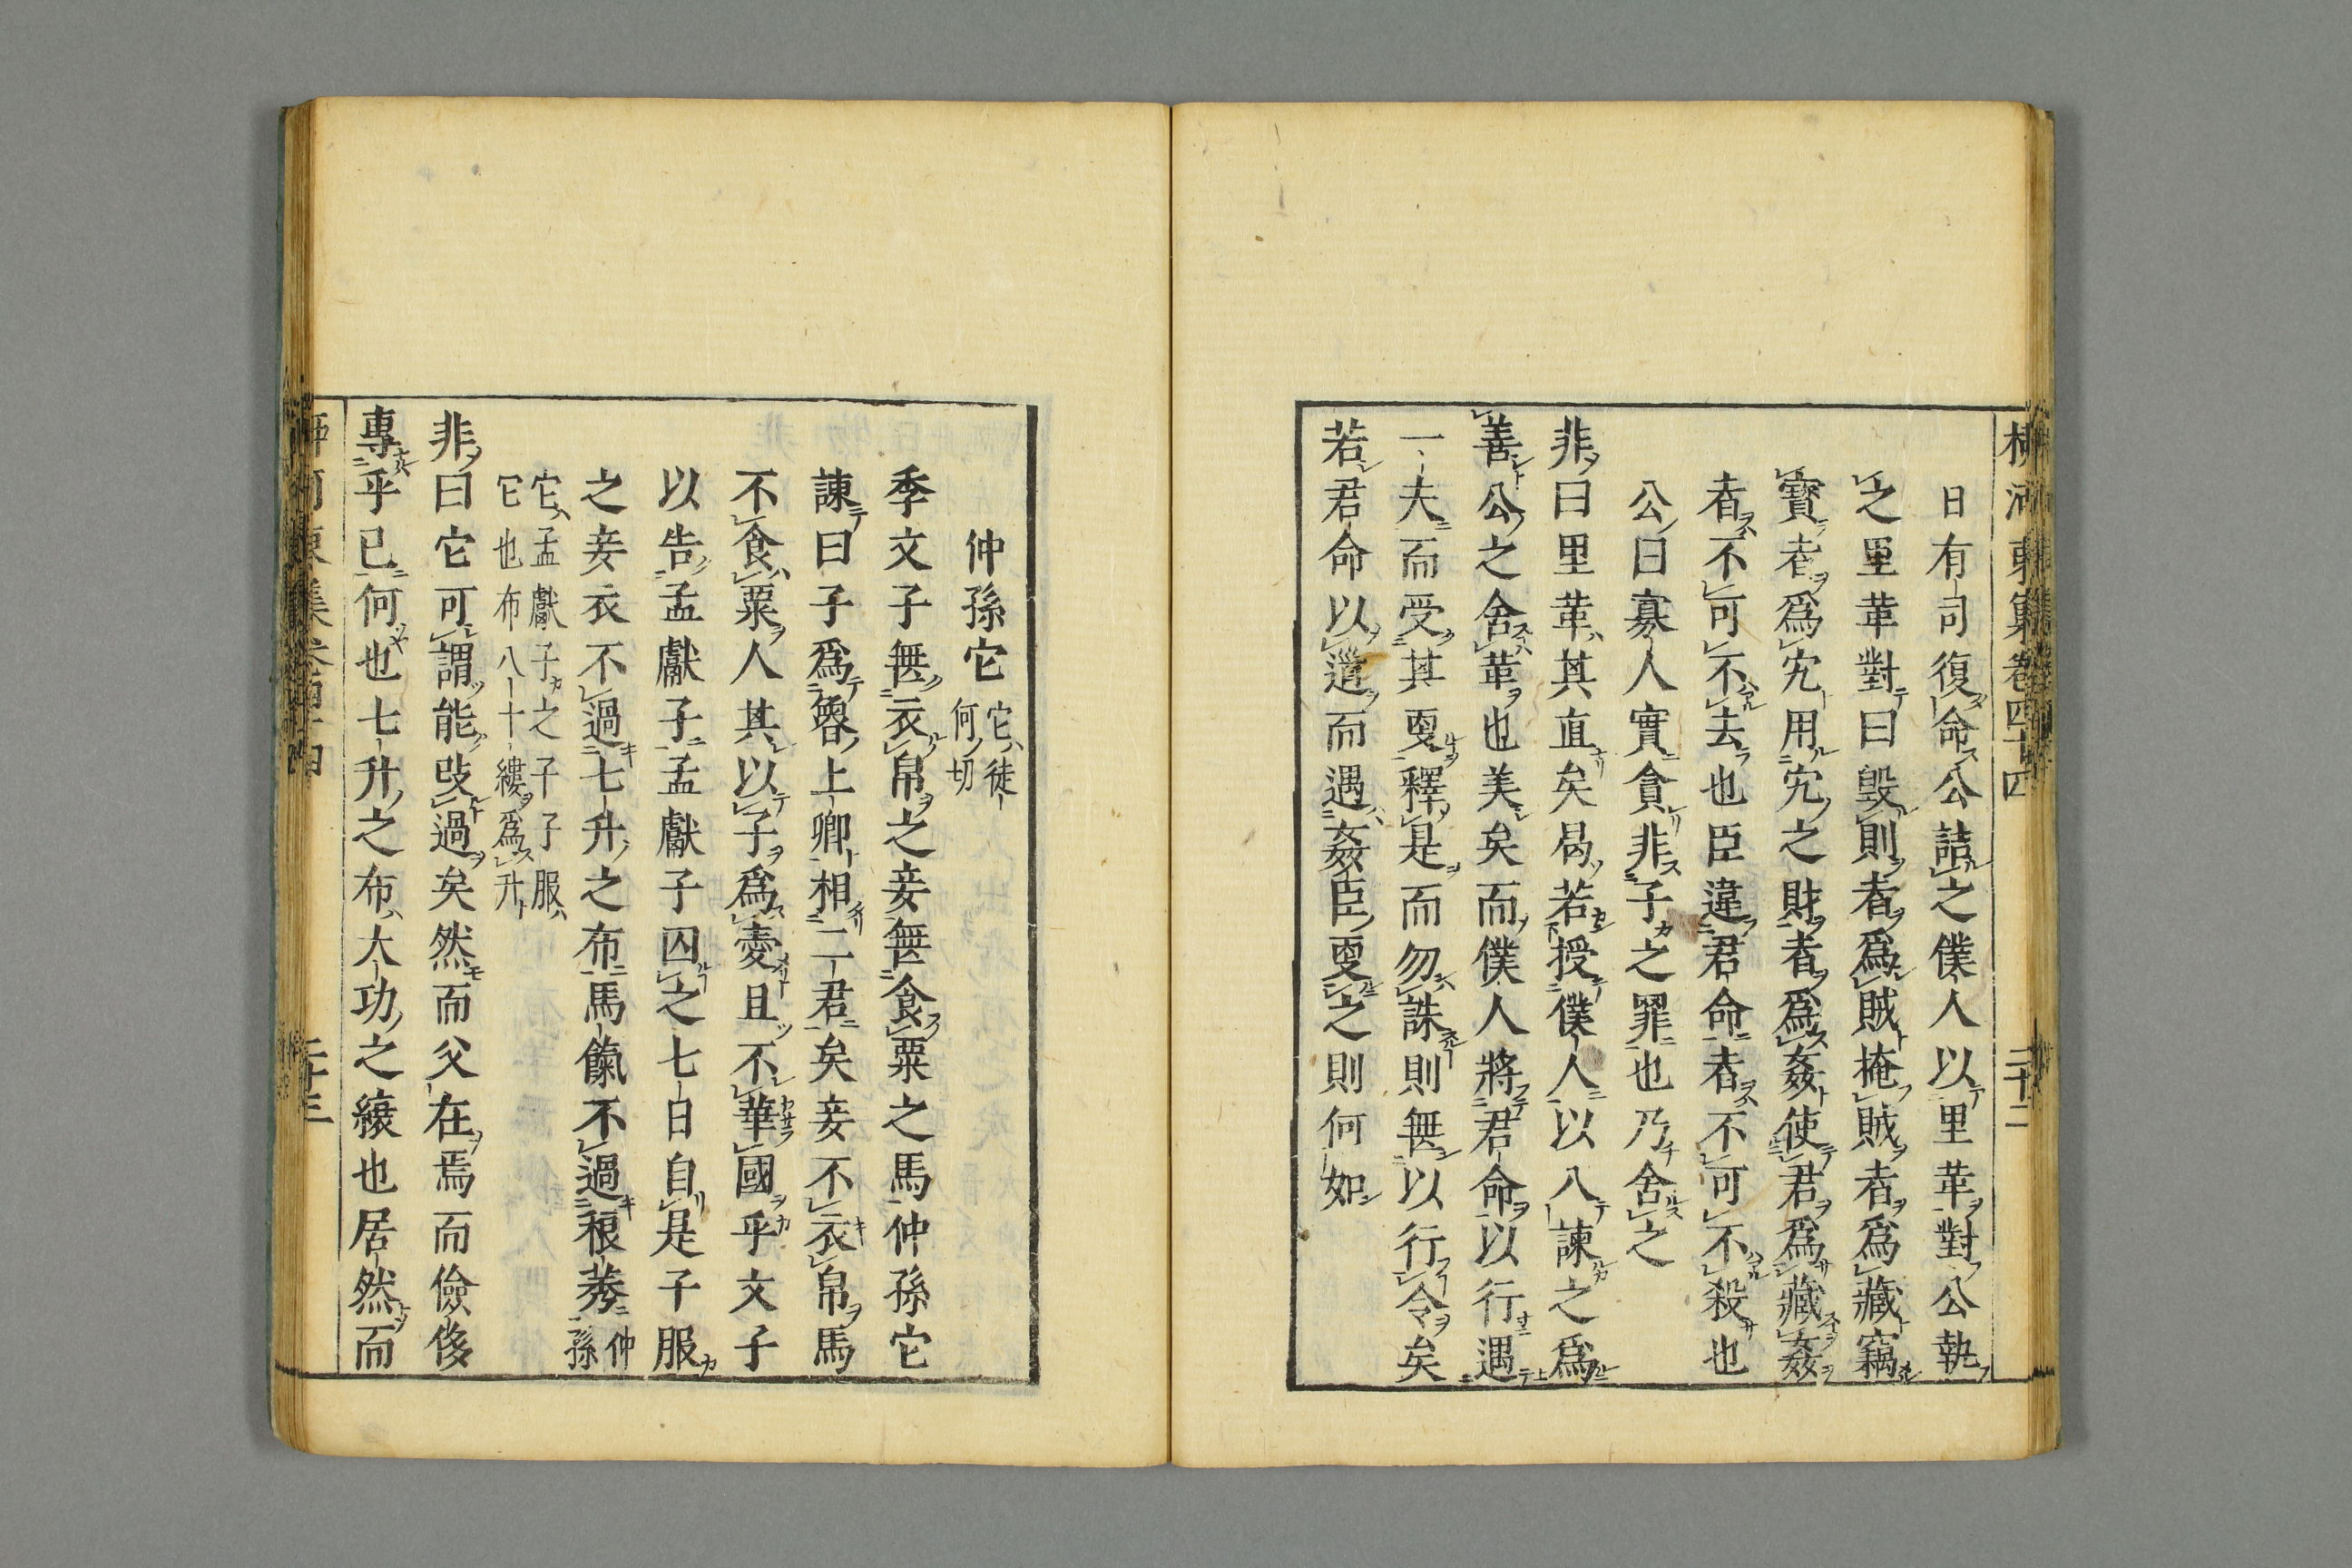 柳河東集卷四十四 二十二
日有司復命公詰之僕人以里革對公執
之里革對曰毀則者爲賊掩賊者爲藏竊
寶者爲宄用宄之財者爲姦使君爲藏姦
者不可不去也臣違君命者不可不殺也
公曰寡人實貪非子之罪也乃舍之
非曰里革其直矣曷若授僕人以入諫之爲
善公之舍革也美矣而僕人將君命以行遇
一夫而受其更釋是而勿誅則無以行令矣
若君命以遣而遇姦臣更之則何如
仲孫它 它徒何切
季文子無衣帛之妾無食粟之馬仲孫它
諫曰子爲魯上卿相二君矣妾不衣帛馬
不食粟人其以子爲愛且不華國乎文子
以告孟獻子孟獻子囚之七日自是子服
之妾衣不過七升之布馬餼不過稂莠 仲孫
它孟獻子之子子服
它也布八十縷爲升
非曰它可謂能改過矣然而父在焉而儉侈
專乎已何也七升之布大功之縗也居然而
柳河東集卷四十四 二十三